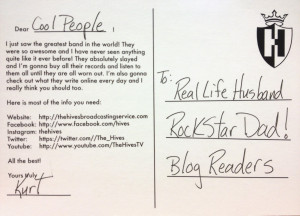 Dear Cool People !
I just saw the greatest band in the world! They
were so awesome and I have never seen anything
quite like it ever before! They absolutely slayed
and I'm gonna buy all their records and listen to
them all until they are all worn out. I'm also gonna
check out what they write online every day and I
really think you should too.
Here is most of the info you need:
Website: http://thehivesbroadcastingservice.com
Facebook: http://www.facebook.com/hives
Instagram: thehives
Twitter: https://twitter.com/The_Hives
Youtube: http://www.youtube.com/TheHivesTV
All the best!
Yours truly
Kurt
To:
Real Life Husband
RockStar Dad!
Blog Readers